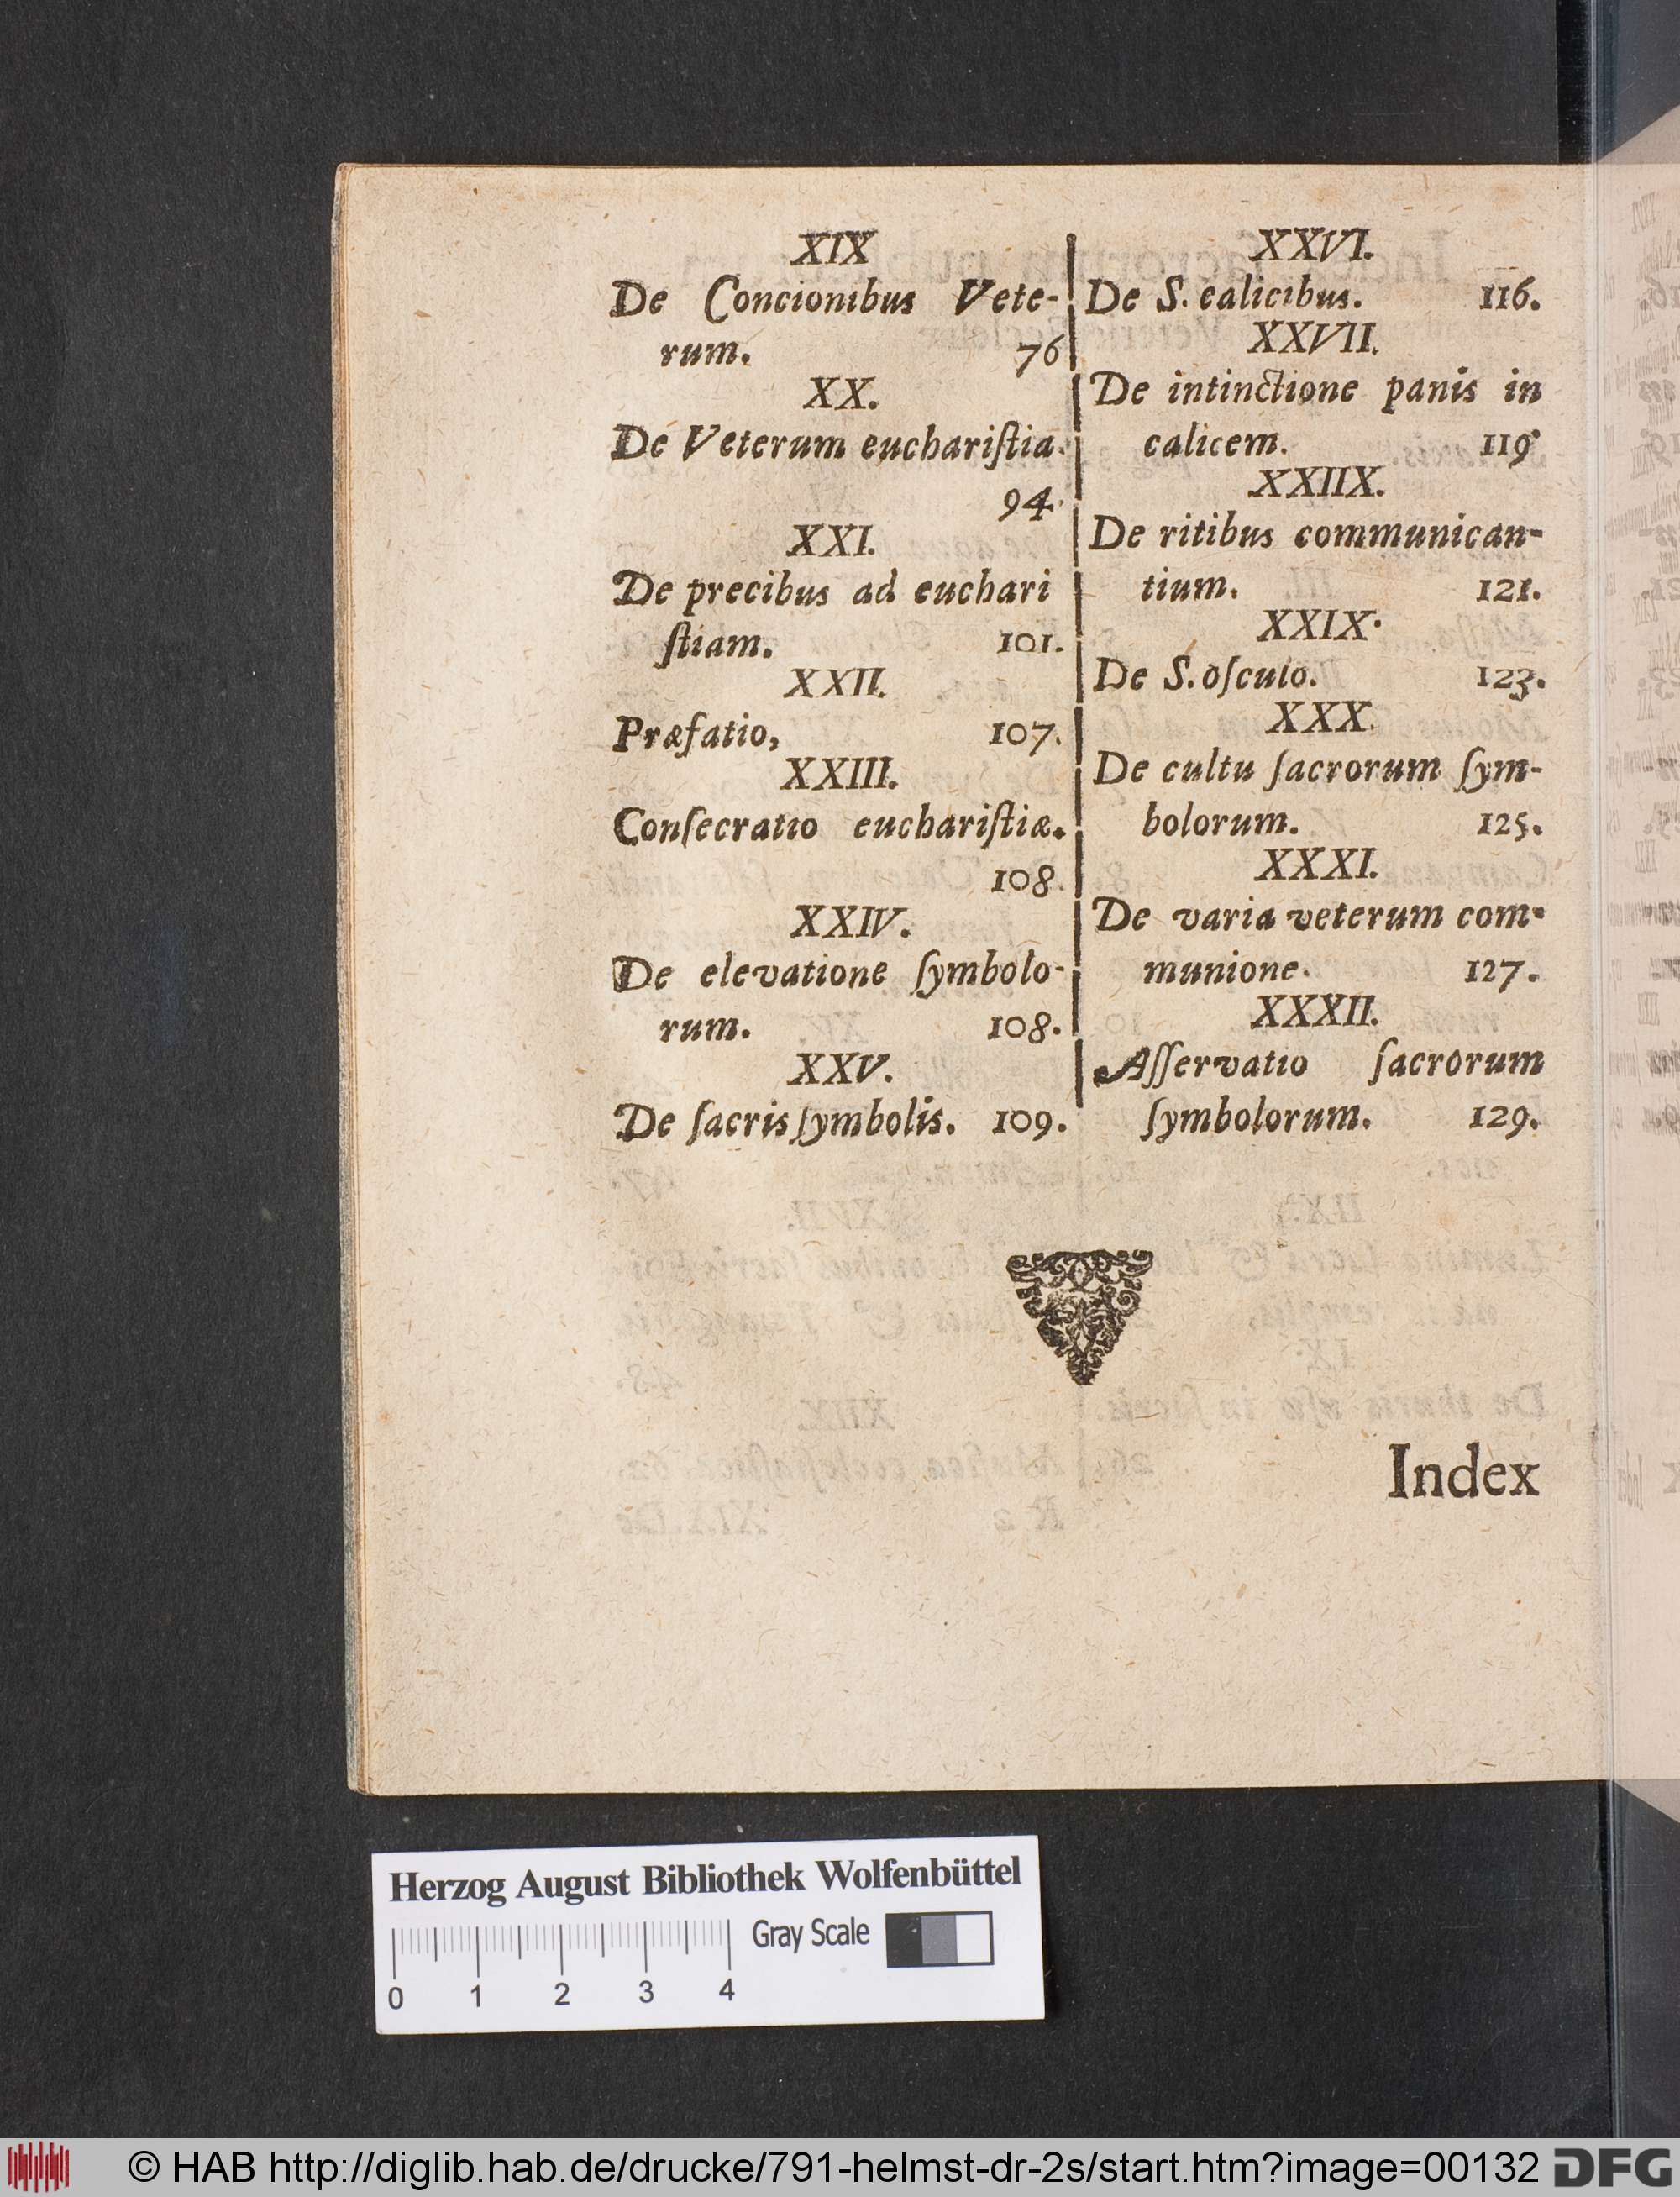 XIX
De Concionibus Vete-
rum. 76
XX.
De Veterum euchariſtia.
94.
XXI.
De precibus ad euchari
ſtiam. 101.
XXII.
Præfatio, 107.
XXIII.
Conſecratio euchariſtiæ.
108.
XXIV.
De elevatione ſymbolo-
rum. 108.
XXV.
De ſacris ſymbolis. 109.
XXVI.
De S. calicibus. 116.
XXVII.
De intinctione panis in
calicem. 119.
XXIIX.
De ritibus communican-
tium. 121.
XXIX.
De S. oſculo. 123.
XXX.
De cultu ſacrorum ſym-
bolorum. 125.
XXXI.
De varia veterum com-
munione. 127.
XXXII.
Aſſervatio ſacrorum
ſymbolorum. 129.
Index
Herzog August Bibliothek Wolfenbüttel
Gray Scale
0 1 2 3 4
© HAB http://diglib.hab.de/drucke/791-helmst-dr-2s/start.htm?image=00132 DFG